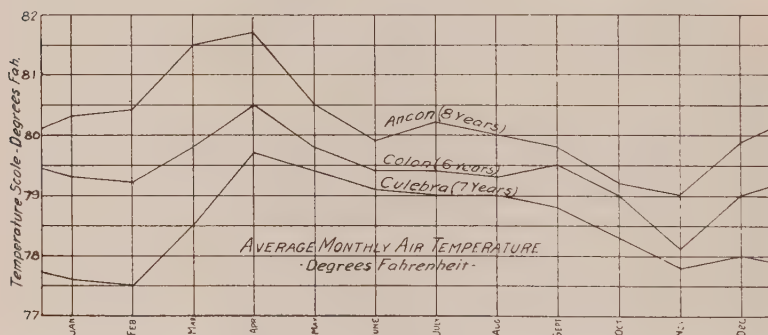 82
81
80
79
78
77
Temperature Scale-Degrees Fah.
Ancon (8 Years)
Colon (6 Years)
Culebra (7 Years)
AVERAGE MONTHLY AIR TEMPERATURE
-Degrees Fahrenheit-
JAN
FEB
MAR
APR
MAY
JUNE
JULY
AUG
SEPT
OCT
DEC